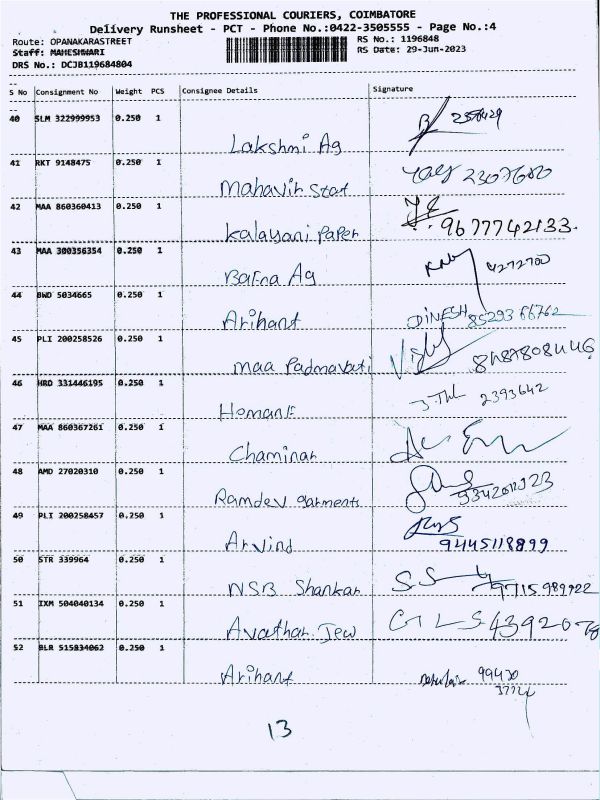 THE PROFESSIONAL COURIERS, COIMBATORE
Delivery Runsheet - PCT - Phone No.:0422-3505555 - Page No.:4
Route: OPANAKARASTREET RS No.: 1196848
Staff: MAHESHWARI RS Date: 29-Jun-2023
DRS No.: DCJB119684804
S No Consignment No Weight PCS Consignee Details Signature
40 SLM 322999953 0.250 1
Lakshmi Ag
41 RKT 9148475 0.250 1
Mahavir Stat 2307680
42 MAA 860360413 0.250 1
Kalayani Paper 9677742133.
43 MAA 300356354 0.250 1
Bafna Ag 4272700
44 BWD 5034665 0.250 1
Arihant DINESH 8529366762
45 PLI 200258526 0.250 1
Maa Padmavati
46 HRD 331446195 0.250 1
Hemank 2393642
47 MAA 860367261 0.250 1
Chaminar
48 AMD 27020310 0.250 1
Ramdev garments
49 PLI 200258457 0.250 1
Arvind 9445118899
50 STR 339964 0.250 1
NSB Shankar 9715989922
51 IXM 504040134 0.250 1
Avathar Jew
52 BLR 515834062 0.250 1
Arihant 99430
13